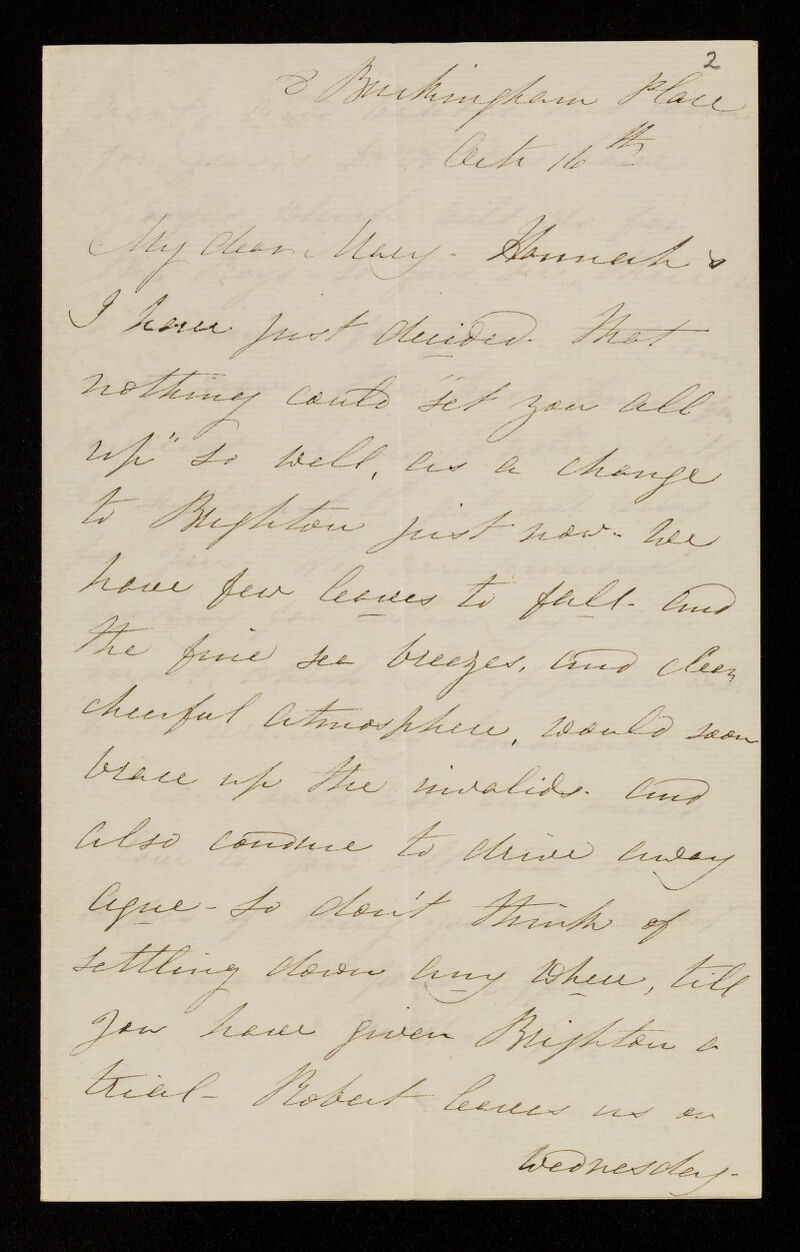 2
8 Buckingham Place
Oct 16th
My dear Mary - Hannah &
I have just decided that
nothing could "set you all
up" so well, as a change
to Brighton just now - We
have few leaves to fall - and
the fine sea breezes, and clear
cheerful atmosphere, would soon
brace up the invalids - and
also conduce to drive away
ague - so don't think of
settling down any where, till
you have given Brighton a
trial - Robert leaves us on
Wednesday -